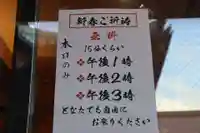 新春ご祈祷
無料
本日のみ
15分くらい
※午後1時
※午後2時
※午後3時
どなたでも自由に
お乗りください